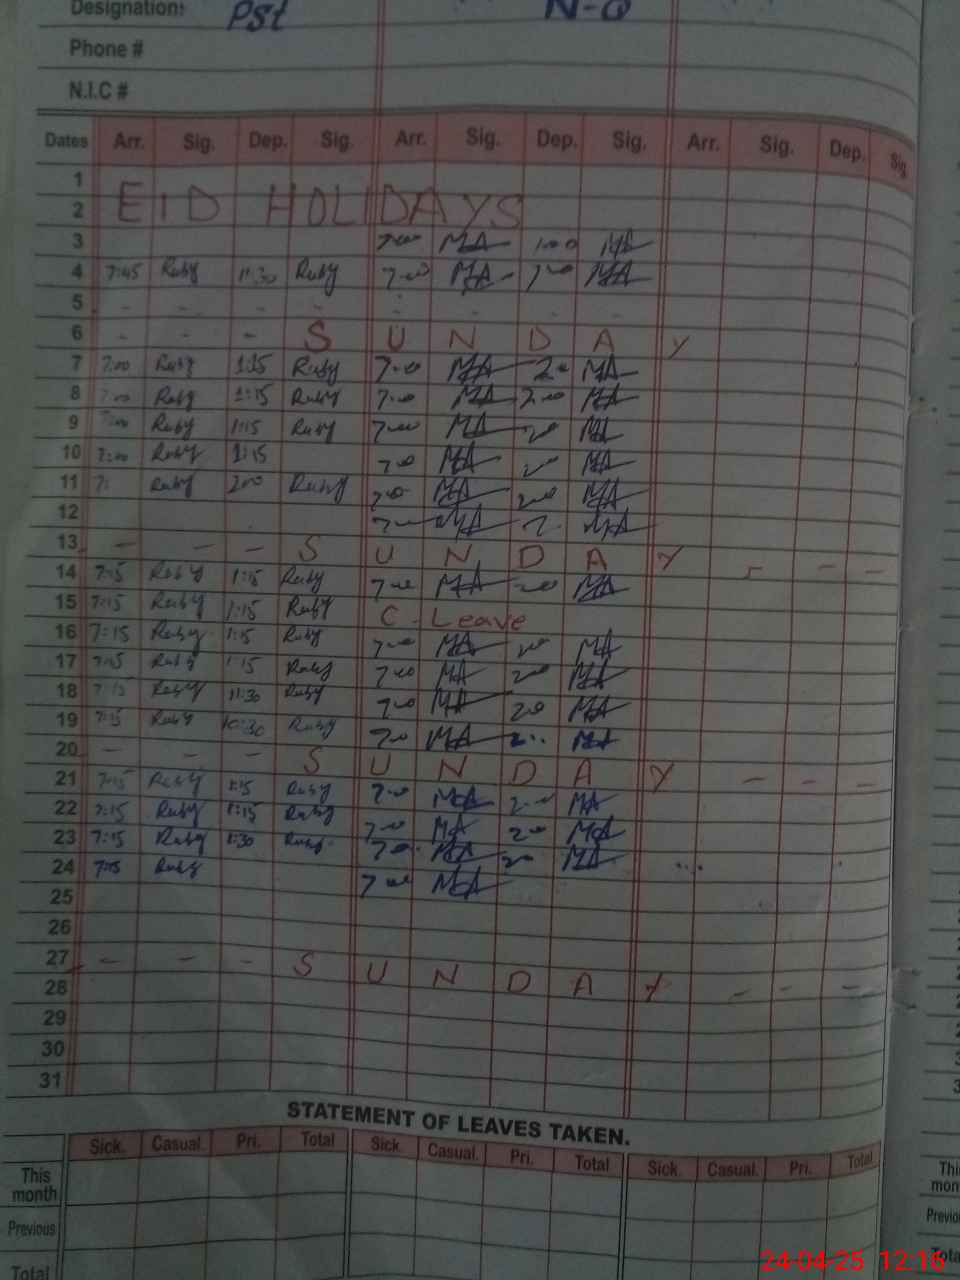 Designation: Pst N-Q
Phone #
N.I.C #
Dates Arr. Sig. Dep. Sig. Arr. Sig. Dep. Sig. Arr. Sig. Dep. Sig
1
2 EID HOLIDAYS
3 7:00 MA 1:00 MA
4 7:45 Ruby 11:30 Ruby 7:00 MA 1:00 MA
5 - - - -
6 - - - S U N D A Y
7 7:00 Ruby 1:15 Ruby 7:00 MA 2:00 MA
8 7:00 Ruby 1:15 Ruby 7:00 MA 2:00 MA
9 7:00 Ruby 1:15 Ruby 7:00 MA 2:00 MA
10 7:00 Ruby 1:15 7:00 MA 2:00 MA
11 7: Ruby 2:00 Ruby 7:00 MA 2:00 MA
12 7:00 MA 2: MA
13 - - - S U N D A Y - - -
14 7:15 Ruby 1:15 Ruby 7:00 MA 2:00 MA
15 7:15 Ruby 1:15 Ruby C - Leave
16 7:15 Ruby 1:15 Ruby 7:00 MA 2:00 MA
17 7:15 Ruby 1:15 Ruby 7:00 MA 2:00 MA
18 7:15 Ruby 11:30 Ruby 7:00 MA 2:00 MA
19 7:15 Ruby 10:30 Ruby 7:00 MA 2:00 MA
20 - - - S U N D A Y - - -
21 7:15 Ruby 1:15 Ruby 7:00 MA 2:00 MA
22 7:15 Ruby 1:15 Ruby 7:00 MA 2:00 MA
23 7:15 Ruby 1:30 Ruby 7:00 MA 2:00 MA
24 7:15 Ruby 7:00 MA
25
26
27 - - - S U N D A Y - - -
28
29
30
31
STATEMENT OF LEAVES TAKEN.
Sick. Casual. Pri. Total Sick. Casual. Pri. Total Sick. Casual. Pri. Total
This month
Previous
Total
24-04-25 12:18